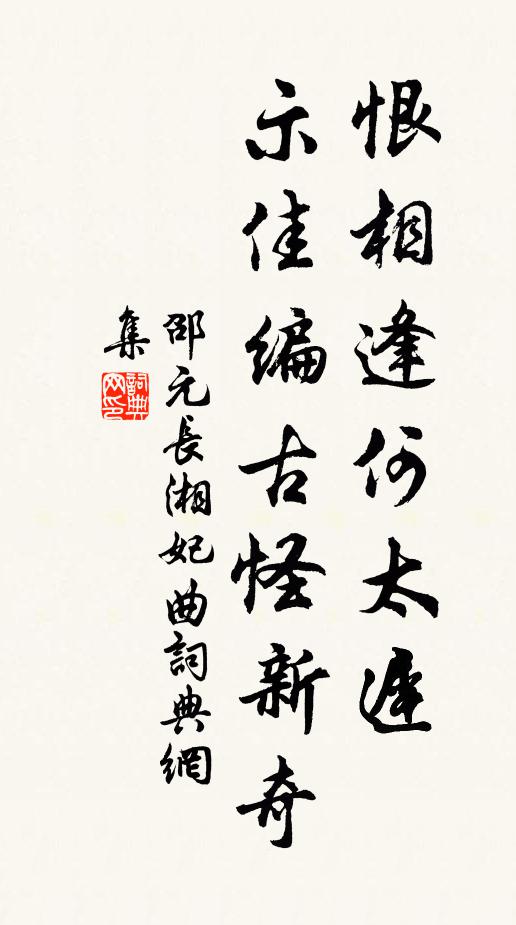 恨相逢何太遲
示佳編古怪新奇
邵元長湘妃曲詞典網
集
詞典
网印